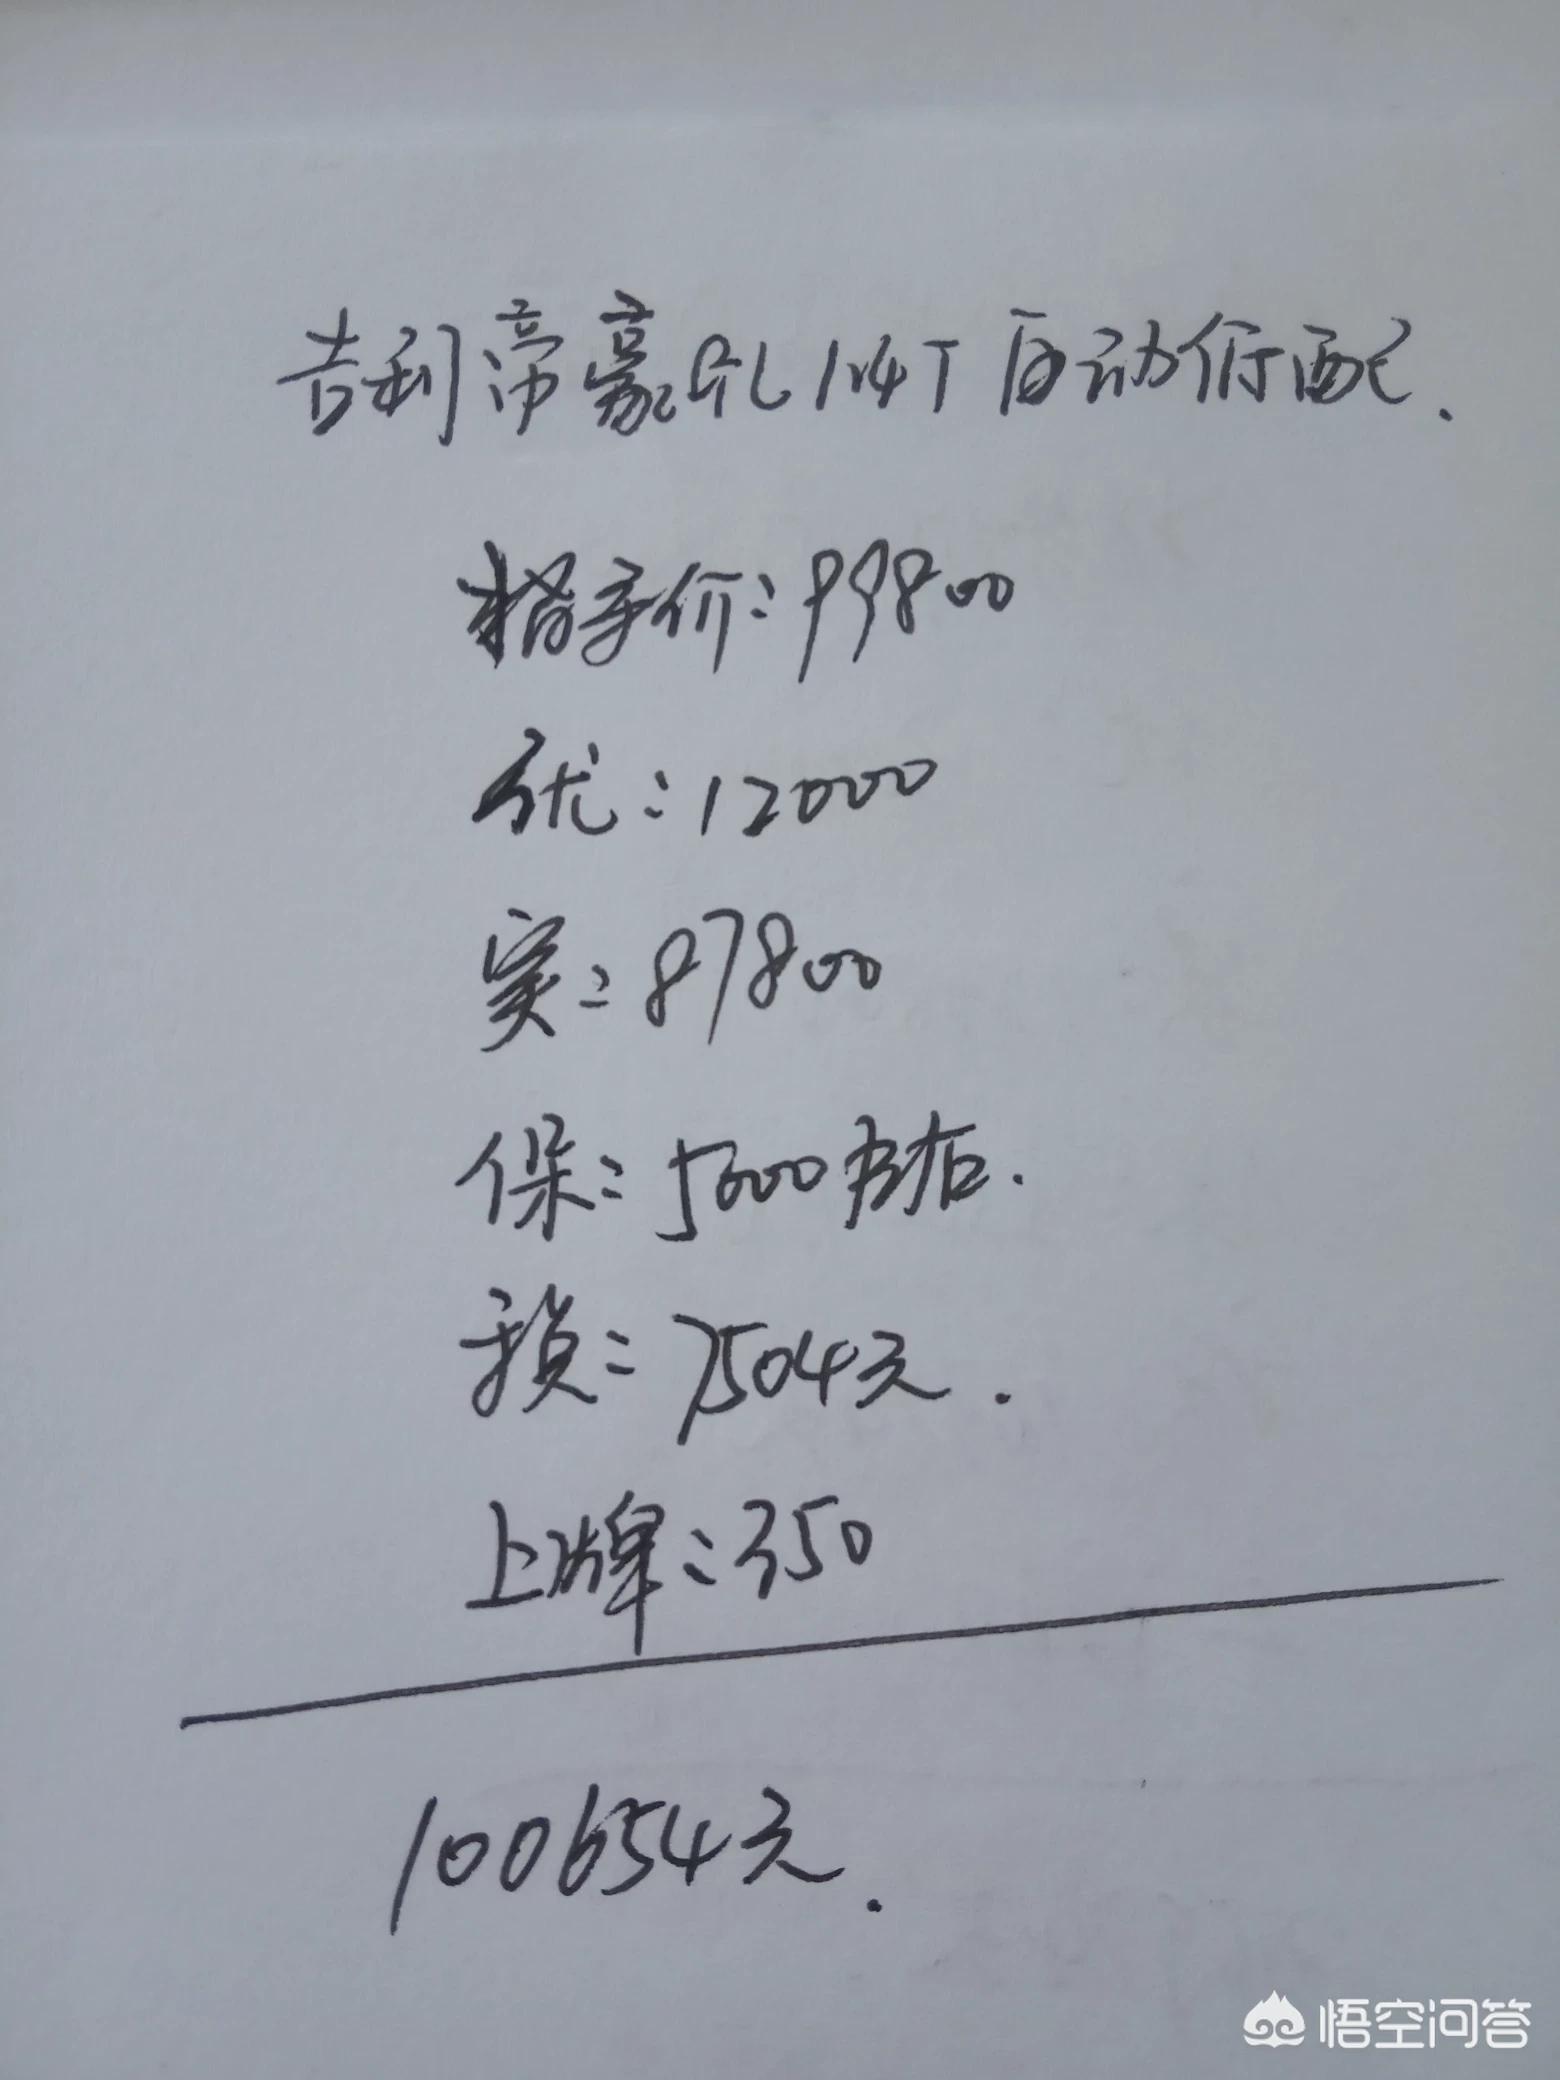 吉利帝豪GL 1.4T自动低配.
指导价:99800
优:12000
实:87800
保:5000左右.
税:7504元.
上牌:350
100654元.
悟空问答